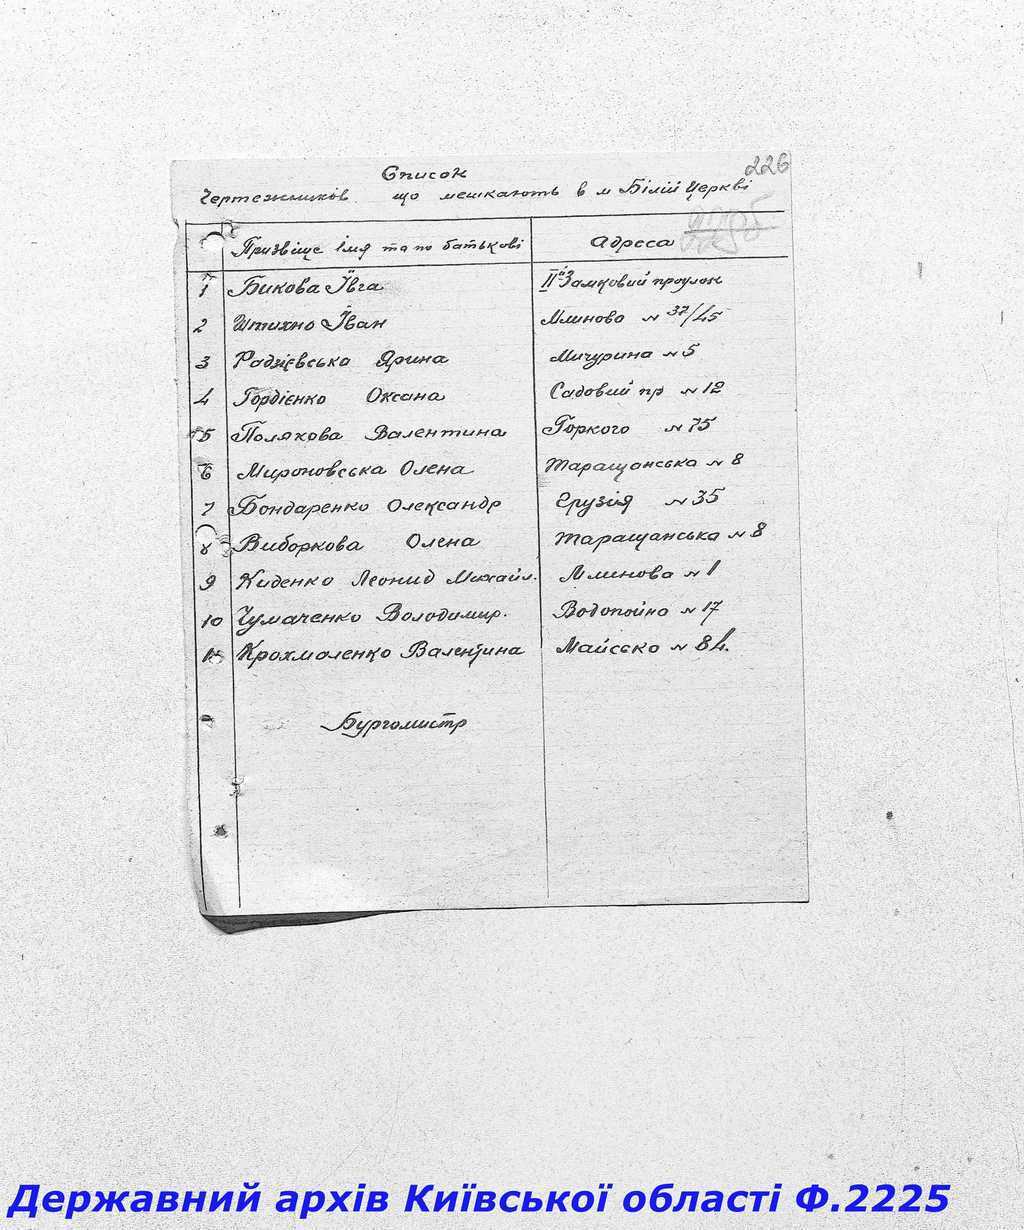 226
Список
Чертежників що мешкають в м Білій Церкві
Призвіще імя та по батькові Адреса
1 Бикова Ївга ІІй Замковий проулок
2 Штихно Іван Млинова № 37/45
3 Радзієвська Ярина Мичурина № 5
4 Гордієнко Оксана Садовий пр № 12
5 Полякова Валентина Горкого № 75
6 Мироновська Олена Таращанська № 8
7 Бондаренко Олександр Грузія № 35
8 Виборкова Олена Таращанська № 8
9 Киденко Леонид Михайл. Млинова № 1
10 Чумаченко Володимир. Водопойна № 17
11 Крохмаленко Валентина Майсько № 8
Бургомистр
Державний архів Київської області Ф.2225